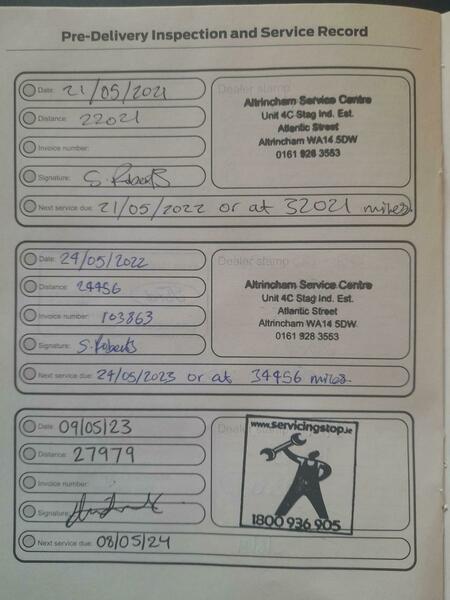 Pre-Delivery Inspection and Service Record
Date: 21/05/2021
Distance: 22021
Invoice number:
Signature: S. Roberts
Next service due: 21/05/2022 or at 32021 miles.
Dealer stamp
Altrincham Service Centre
Unit 4C Stag Ind. Est.
Atlantic Street
Altrincham WA14 5DW
0161 928 3553
Date: 24/05/2022
Distance: 24456
Invoice number: 103863
Signature: S. Roberts
Next service due: 24/05/2023 or at 34456 miles.
Dealer stamp
Altrincham Service Centre
Unit 4C Stag Ind. Est.
Atlantic Street
Altrincham WA14 5DW.
0161 928 3553
Date: 09/05/23
Distance: 27979
Invoice number:
Signature:
Next service due: 08/05/24
www.servicingstop.ie
1800 936 905